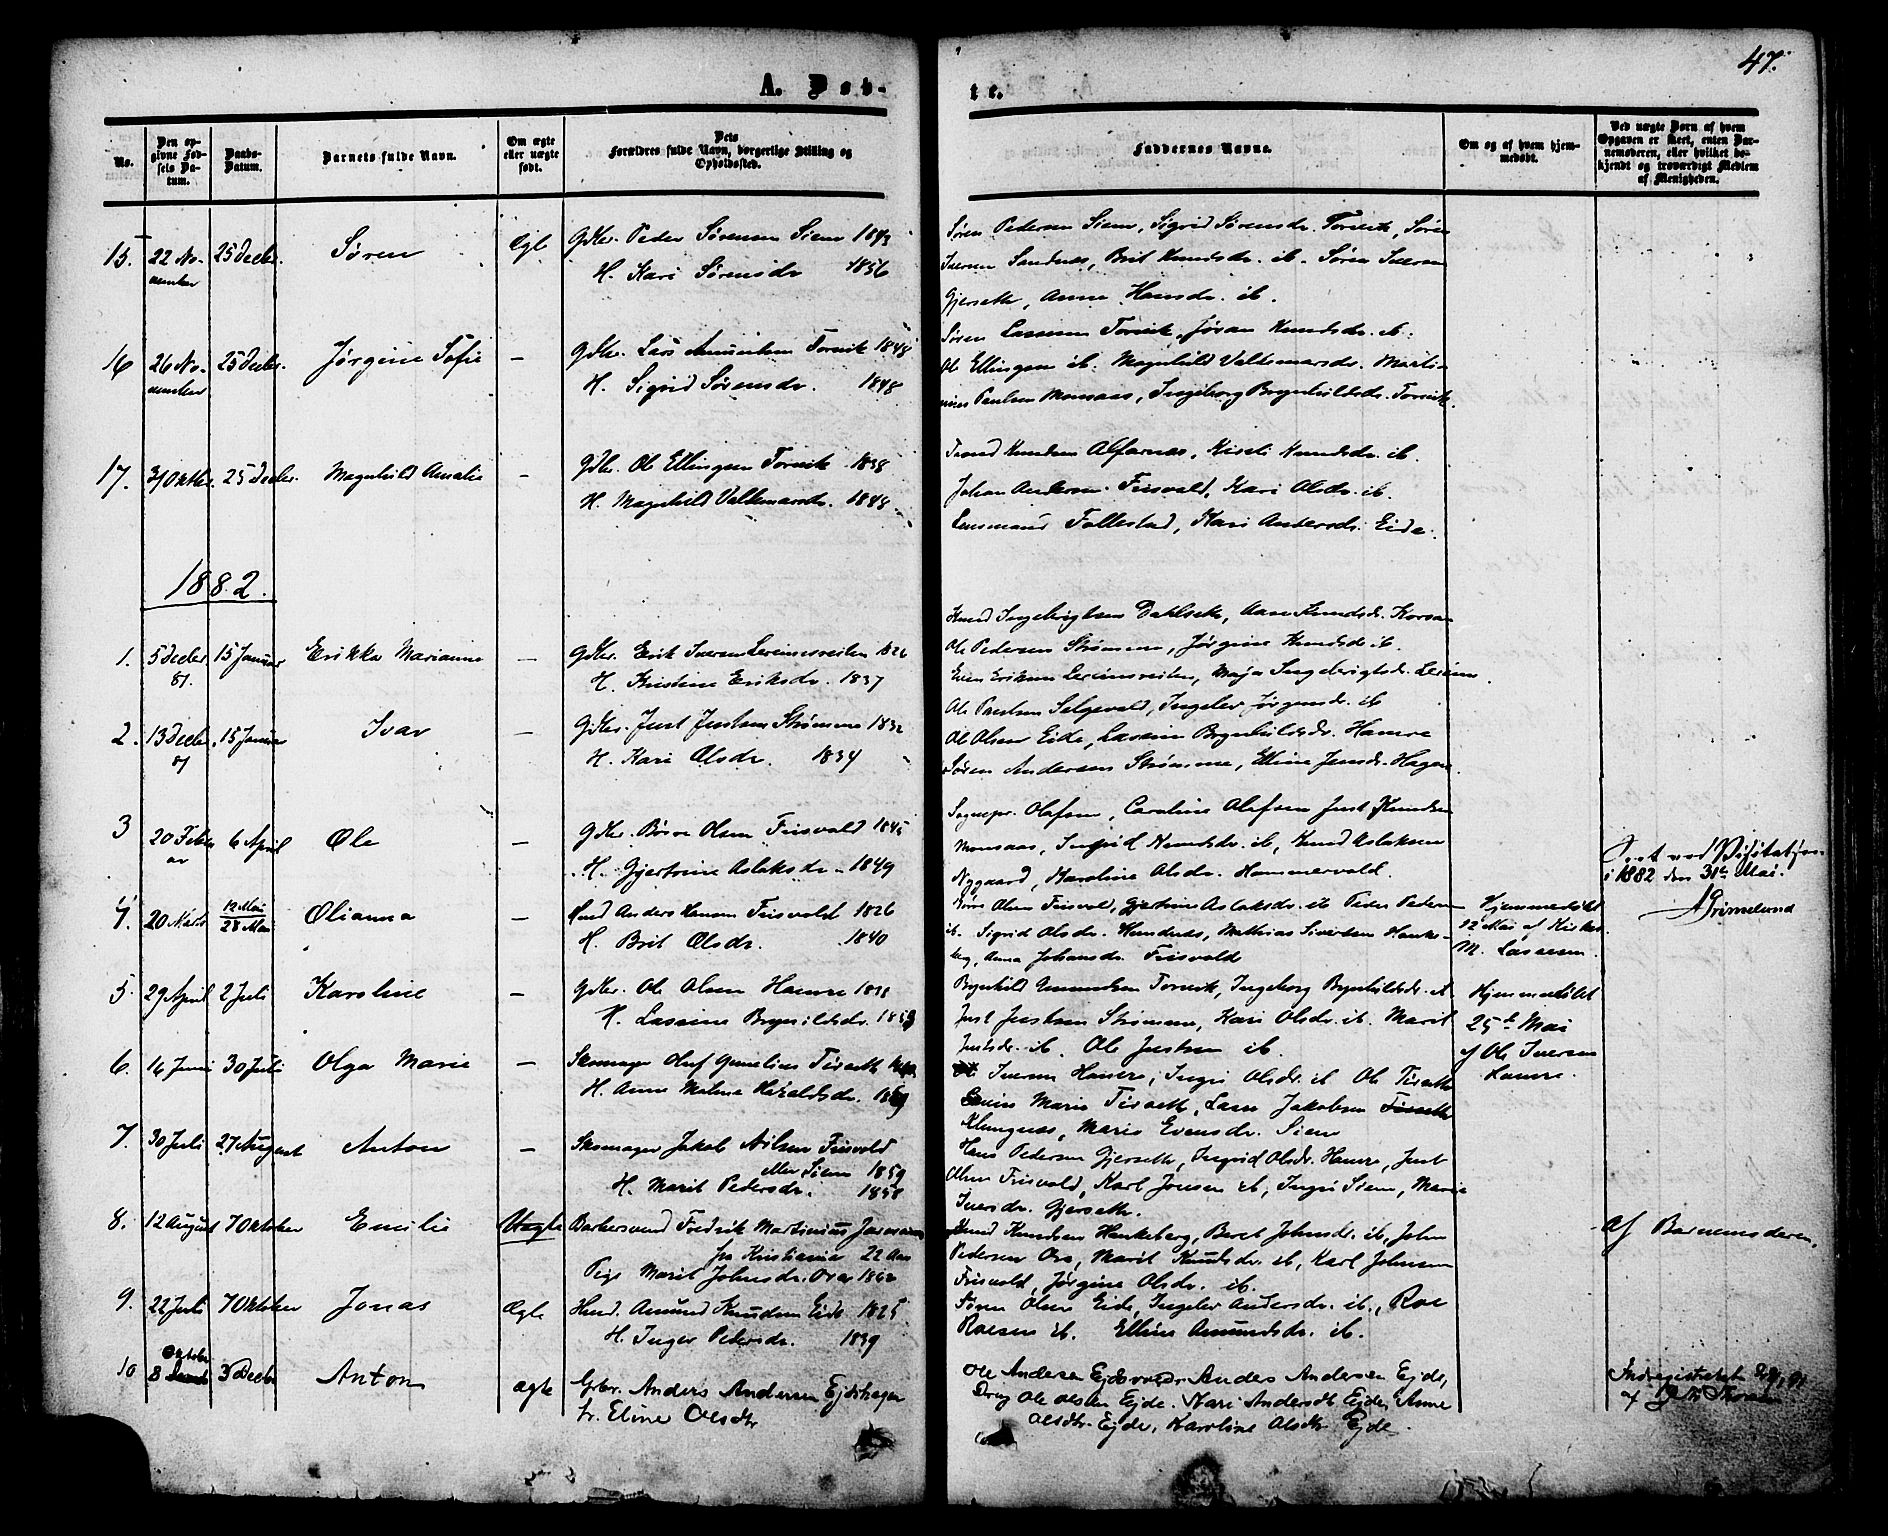 47.
A. Døb-
te.
No.
Den opgivne Fødsels Datum.
Daabs-Datum.
Barnets fulde Navn.
Om ægte eller uægte født.
Dets Forældres fulde Navn, borgerlige Stilling og Opholdssted.
Faddernes Navne.
Om og af hvem hjemmedøbt.
Ved uægte Børn af hvem Opgaven er skeet, enten Barnemoderen, eller hvilket bekjendt og troværdigt Medlem af Menigheden.
15. 22 November 25 Decbr. Søren Ægte Gdbr. Peder Sørensen Siem 1843
H. Kari Sørensdr 1856
Søren Pedersen Siem, Sigrid Sørensdr. Torvik, Søren
Iversen Sandnes, Brit Knudsdr. ib. Søren Iversen
Gjersetb, Anne Hansdr. ib.
16 26 November 25 Decbr. Jørgine Sofie — Gdbr. Lars Amundsen Torvik 1848
H. Sigrid Sørensdr. 1848
Søren Lassesen Torvik, Jøran Knudsdr. ib.
Ole Ellingsen ib. Magnhild Valkemarsdr. Marti-
nus Paulsen Monsaas, Ingeborg Brynhildsdr. Torvik.
17. 31 Oktbr. 25 Decbr. Magnhild Amalie — Gdbr. Ole Ellingsen Torvik 1838
H. Magnhild Valkmarsdr. 1848
Trond Knudsen Alfarnæs, Kirsti Knudsdr. ib.
Johan Andersen Frisvold, Kari Olsdr. ib.
Lensmand Follestad, Kari Andersdr. Eide.
1882.
1. 5 Decbr 81. 15 Januar Erikka Marianne — Gdbr. Erik Iversen Lereimsveiten 1826
H. Kristine Eriksdr. 1837
Knud Ingebrigtsen Dahlseth, Aase Knudsdr. Korsan
Ole Pedersen Strømme, Jørgine Knudsdr. ib.
Even Eriksen Lereimsveiten, Maja Ingebrigtsdr. Lereim.
2. 13 Decbr. 81 15 Januar Ivar — Gdbr. Just Justsen Strømme 1832
H. Kari Olsdr. 1834
Ole Paulsen Selgevold, Ingelev Jørgensdr. ib
Ole Olsen Eide, Lasseine Brynhildsdr. Hamre
Søren Andersen Strømme, Elline Jensdr. Hagen.
3 20 Februar 6 April Ole — Gdbr. Børre Olsen Frisvold 1845
H. Gjertrine Aslaksdr. 1849
Sognepr. Olafsen, Caroline Olafsen Just Knudsen
Monsaas, Ingrid Knudsdr. ib, Knud Aslaksen
Nygaard, Karoline Olsdr. Hammervold.
Seet ved Visitatsen
i 1882 den 31te Mai.
AGrimelund
4. 20 Marts 12 Mai 28 Mai Olianna — Hmd Anders Hansen Frisvold 1826
H. Brit Olsdr. 1840
Børre Olsen Frisvold, Gjertrine Aslaksdr. ib Peder Pedersen
ib. Sigrid Olsdr. Hundnes, Mathias Sivertsen Hauke-
berg, Anna Johansdr. Frisvold
Hjemmedøbt
12 Mai af Kirkes.
M. Lassesen.
5. 29 April 2 Juli Karoline — Gdbr. Ole Olsen Hamre 1838
H. Lasseine Brynildsdr. 1853
Brynhild Amundsen Torvik, Ingeborg Brynhildsdr. ib.
Just Justsen Strømme, Kari Olsdr. ib. Marit
Justsdr. ib. Ole Justsen ib.
Hjemmedøbt
25de Mai
af Ole Iversen
Hamre.
6. 14 Juni 30 Juli Olga Marie — Skomager Oluf Tiseth
H. Anne Malene Haraldsdr. 1859
Iversen Hamre, Ingri Olsdr. ib Ole Tiseth
Marie Tiseth, Lars Jakobsen
Klungnæs, Maris Evensdr. Siem
7. 30 Juli 27 August Anton — Skomager Jakob Nilsen Frisvold
eller Siem 1859
H. Marit Pedersdr. 1858
Hans Pedersen Gjerseth, Ingrid Olsdr. Hamre, Just
Olsen Frisvold, Karl Jonsen ib, Ingri Siem, Marie
Iversdr. Gjerseth.
8. 12 August 7 Oktober Emilie Uægte Barbersvend Fredrik Martinius
fra Kristiania 22 Aar
Pige Marit Johnsdr. Ora 1862
Knud Knudsen Haukeberg, Beret Johnsdr. ib, John
Pedersen Ora, Marit Knudsdr. ib, Karl Johnsen
Frisvold, Jørgine Olsdr. ib.
Af Barnemoderen.
9. 22 Juli 7 Oktober Jonas Ægte Hmd. Amund Knudsen Eide 1825
H. Inger Pedersdr. 1839
Søren Olsen Eide, Ingelev Andersdr. ib., Roe
Roesen ib. Elline Amundsdr. ib.
10 8 Oktober 3 Decbr Anton ægte Gbr. Anders Andersen Ejdehagen
h. Eline Olsdtr
Ole Andersen Andes Andersen Ejde,
Drng Ole Olsen Ejde. Kari Andersdt Ejde, Anne
Olsdtr. Ejde, Karoline Olsdtr Ejde.
Indregistreret